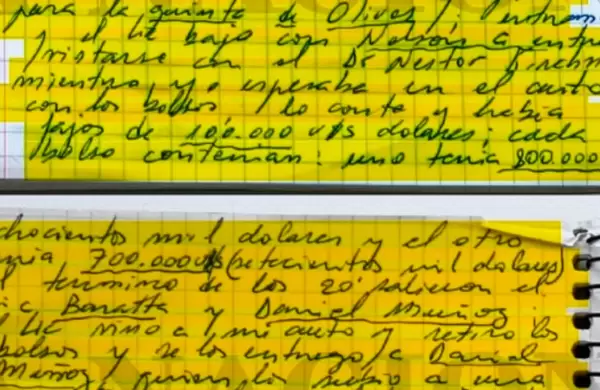 para la quinta de Olivos). entram
y el Lic bajo con Nelson a entre
vistarse con el Dr Nestor Kirchn
mientras yo esperaba en el auto
con los bolsos / lo conte y habia
fajos de 100.000 U$S dolares; cada
bolso contenian: uno tenia 800.000
chocientos mil dolares y el otro
nia 700.000 U$S (setecientos mil dolares)
termino de los 20' salieron el
ic Baratta y Daniel Muñoz;
l Lic vino a mi auto y retiro los
bolsos y se los entrego a Daniel
Muñoz / quien los subio a una